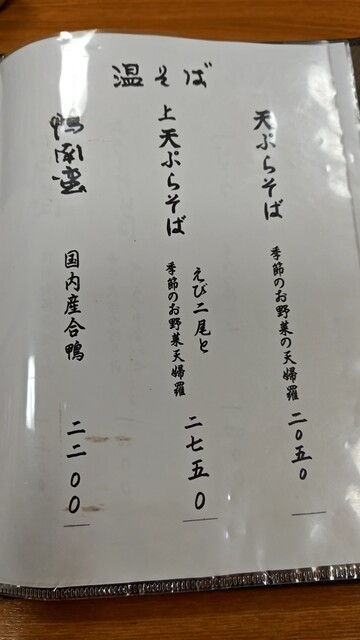 温そば
天ぷらそば
季節のお野菜の天婦羅
二０五０
上天ぷらそば
えび二尾と
季節のお野菜天婦羅
二七五０
鴨南蛮
国内産合鴨
二二００